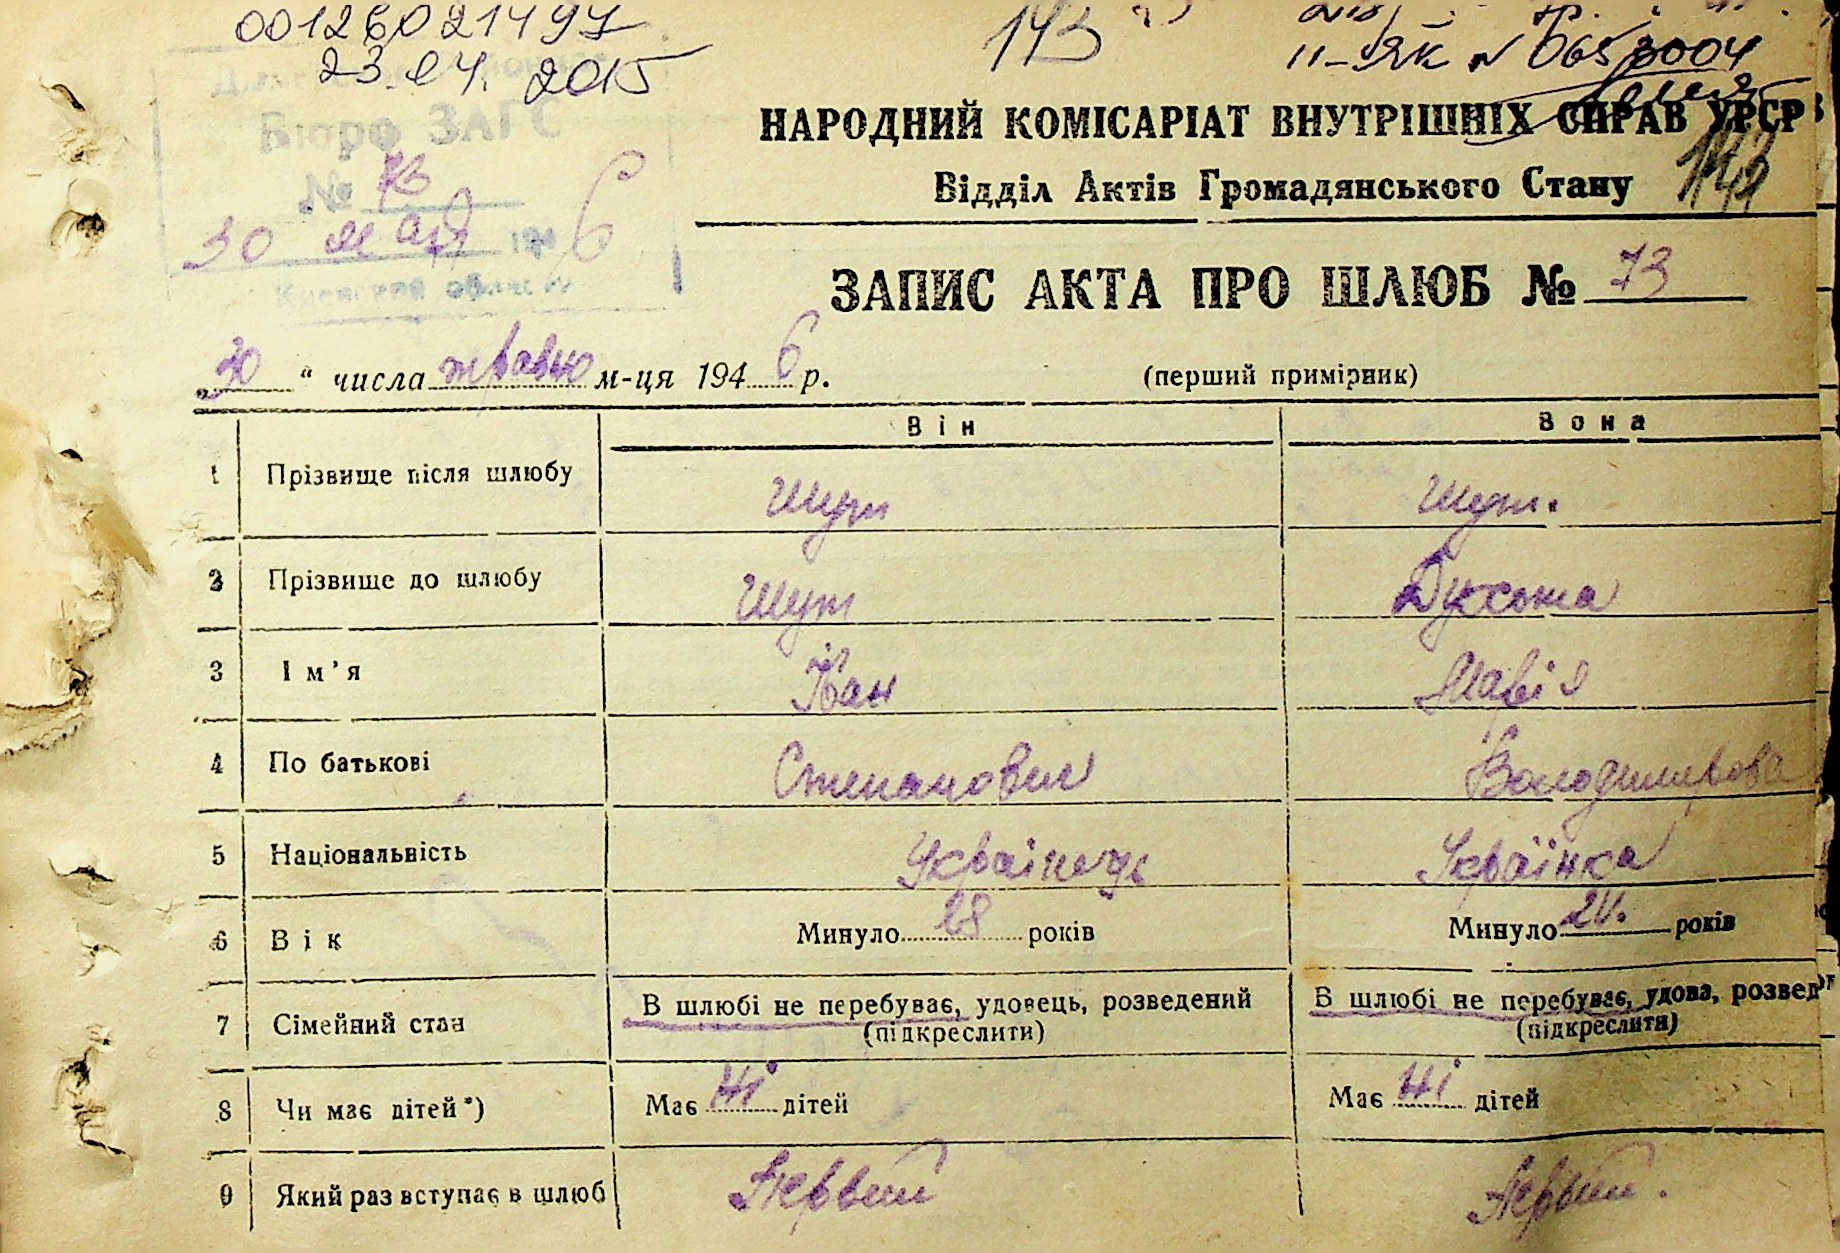 00126021497
23.04.2015
143
II-ЯК N 0653004
Бюро ЗАГС
№ 73
30 мая 1946
Киевской области
НАРОДНИЙ КОМІСАРІАТ ВНУТРІШНІХ СПРАВ УРСР
Відділ Актів Громадянського Стану
143
ЗАПИС АКТА ПРО ШЛЮБ № 73
„30“ числа травня м-ця 1946 р. (перший примірник)
Він Вона
1 Прізвище після шлюбу Шут Шут.
2 Прізвище до шлюбу Шут
3 Ім’я Іван Марія
4 По батькові Степанович Володимирова
5 Національність Українець Українка
6 Вік Минуло 28 років Минуло 24. років
7 Сімейний стан В шлюбі не перебуває, удовець, розведений В шлюбі не перебуває, удова, розвед
(підкреслити) (підкреслити)
8 Чи має дітей*) Має ні дітей Має ні дітей
9 Який раз вступає в шлюб Первий Первий.